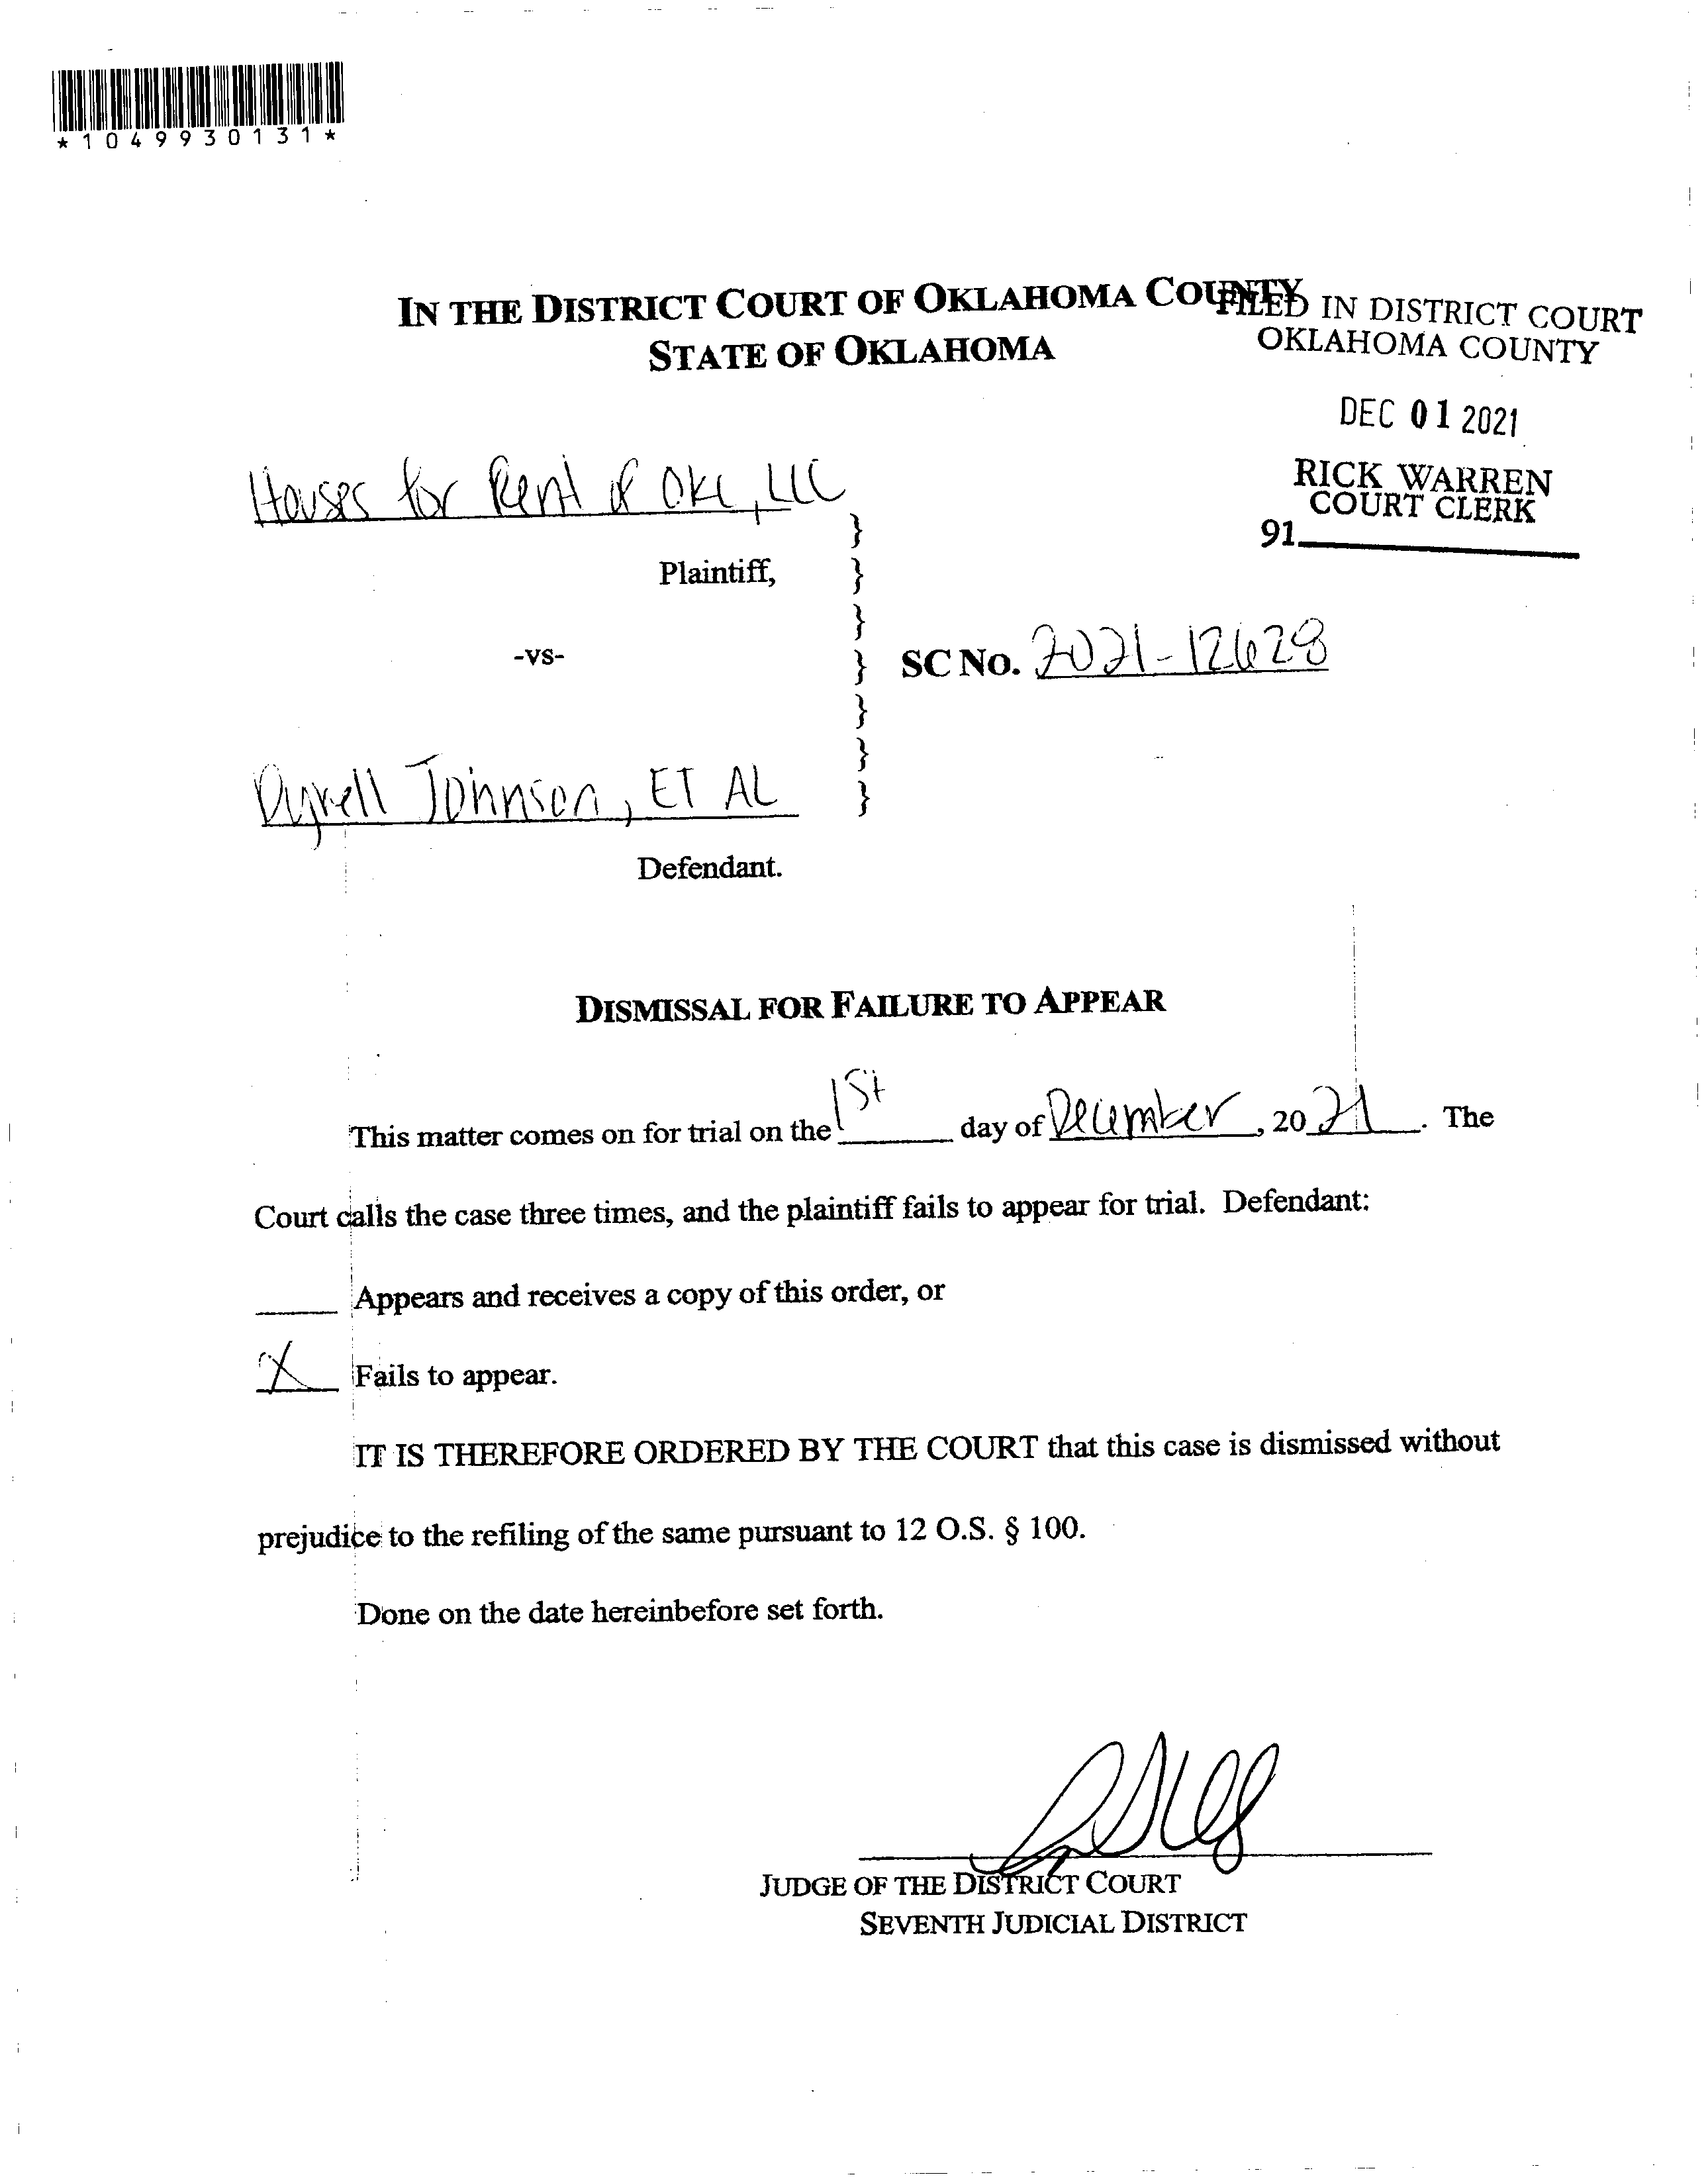 *1049930131*
IN THE DISTRICT COURT OF OKLAHOMA COUNTY
STATE OF OKLAHOMA
FILED IN DISTRICT COURT
OKLAHOMA COUNTY
DEC 01 2021
RICK WARREN
COURT CLERK
91
Houses for Rent of OKC, LLC
}
Plaintiff, }
}
-vs- } SC No. 2021-12628
}
}
Dyrell Johnson, ET AL }
Defendant.
DISMISSAL FOR FAILURE TO APPEAR
This matter comes on for trial on the 1st day of December, 2021. The
Court calls the case three times, and the plaintiff fails to appear for trial. Defendant:
____ Appears and receives a copy of this order, or
X Fails to appear.
IT IS THEREFORE ORDERED BY THE COURT that this case is dismissed without
prejudice to the refiling of the same pursuant to 12 O.S. § 100.
Done on the date hereinbefore set forth.
JUDGE OF THE DISTRICT COURT
SEVENTH JUDICIAL DISTRICT